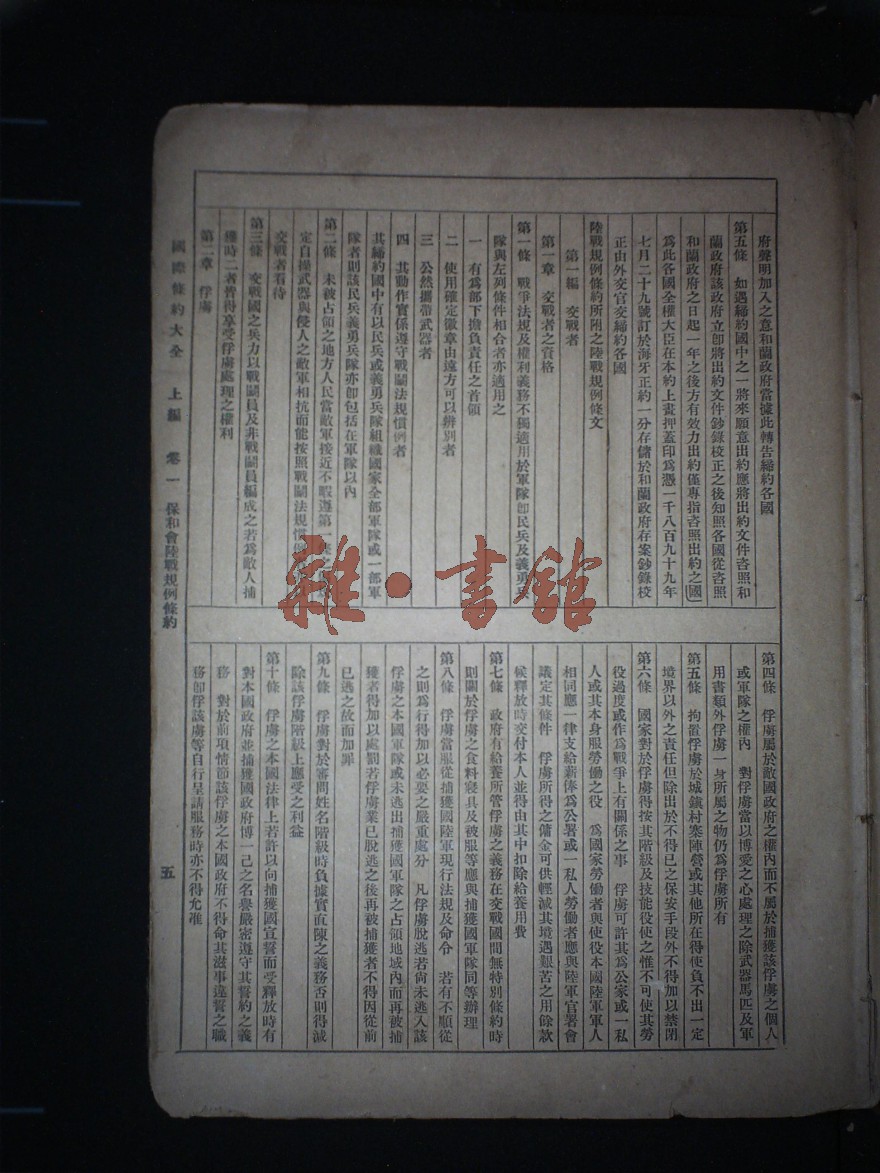 府聲明加入之意和蘭政府當據此轉告締約各國
第五條　如遇締約國中之一將來願意出約應將出約文件咨照和
蘭政府該政府立卽將出約文件鈔錄校正之後知照各國從咨照
和蘭政府之日起一年之後方有效力出約僅專指咨照出約之國
爲此各國全權大臣在本約上畫押蓋印爲憑一千八百九十九年
七月二十九號訂於海牙正約一分存儲於和蘭政府存案鈔錄校
正由外交官交締約各國
陸戰規例條約所附之陸戰規例條文
第一編　交戰者
第一章　交戰者之資格
第一條　戰爭法規及權利義務不獨適用於軍隊卽民兵及義勇兵
隊與左列條件相合者亦適用之
一　有爲部下擔負責任之首領
二　使用確定徽章由遠方可以辨別者
三　公然攜帶武器者
四　其動作實係遵守戰鬭法規慣例者
其締約國中有以民兵或義勇兵隊組織國家全部軍隊或一部軍
隊者則該民兵義勇兵隊亦卽包括在軍隊以內
第二條　未被占領之地方人民當敵軍接近不暇遵第一條之
定自操武器與侵入之敵軍相抗而能按照戰鬭法規慣例
交戰者看待
第三條　交戰國之兵力以戰鬭員及非戰鬭員編成之若爲敵人捕
獲時二者皆得享受俘虜處理之權利
第二章　俘虜
第四條　俘虜屬於敵國政府之權內而不屬於捕獲該俘虜之個人
或軍隊之權內　對俘虜當以博愛之心處理之除武器馬匹及軍
用書類外俘虜一身所屬之物仍爲俘虜所有
第五條　拘置俘虜於城鎭村寨陣營或其他所在得使負不出一定
境界以外之責任但除出於不得已之保安手段外不得加以禁閉
第六條　國家對於俘虜得按其階級及技能役使之惟不可使其勞
役過度或作爲戰爭上有關係之事　俘虜可許其爲公家或一私
人或其本身服勞働之役　爲國家勞働者與使役本國陸軍軍人
相同應一律支給薪俸爲公署或一私人勞働者應與陸軍官署會
議定其條件　俘虜所得之傭金可供輕減其境遇艱苦之用餘款
候釋放時交付本人並得由其中扣除給養用費
第七條　政府有給養所管俘虜之義務在交戰國間無特別條約時
則關於俘虜之食料寢具及被服等應與捕獲國軍隊同等辦理
第八條　俘虜當服從捕獲國陸軍現行法規及命令　若有不順從
之則爲行得加以必要之嚴重處分　凡俘虜脫逃若尙未逃入該
俘虜之本國軍隊或未逃出捕獲國軍隊之占領地域內而再被捕
獲者得加以處罰若俘虜業已脫逃之後再被捕獲者不得因從前
已逃之故而加罪
第九條　俘虜對於審問姓名階級時負據實直陳之義務否則得減
除該俘虜階級上應受之利益
第十條　俘虜之本國法律上若許以向捕獲國宣誓而受釋放時有
對本國政府並捕獲國政府博一己之名譽嚴密遵守其誓約之義
務　對於前項情節該俘虜之本國政府不得命其滋事違誓之職
務卽俘該虜等自行呈請服務時亦不得允准
國際條約大全　上編　卷一　保和會陸戰規例條約
五
雜·書館